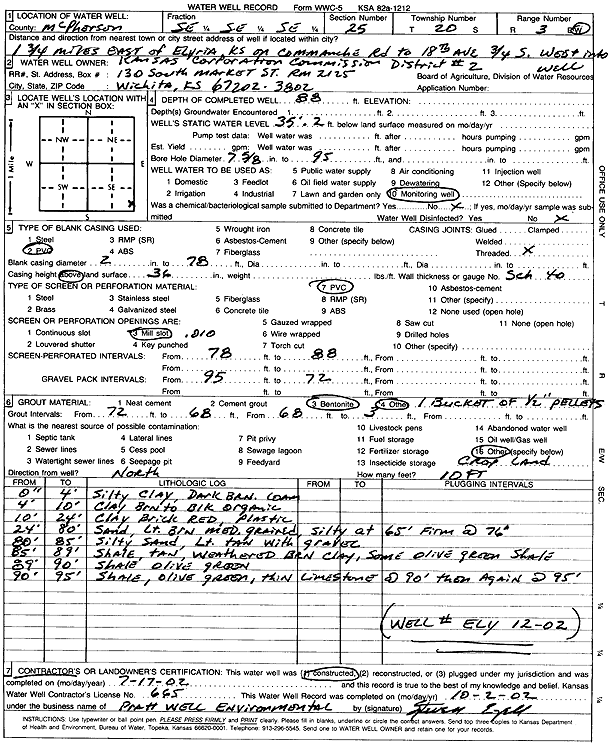 WATER WELL RECORD Form WWC-5 KSA 82a-1212
1 LOCATION OF WATER WELL: Fraction Section Number Township Number Range Number
County: McPherson SE ¼ SE ¼ SE ¼ 25 T 20 S R 3 E/W
Distance and direction from nearest town or city street address of well if located within city?
1 3/4 miles East of Elyria, KS on Commanche Rd to 18th Ave 3/4 S. West into well
2 WATER WELL OWNER: Kansas Corporation Commission District #2
RR#, St. Address, Box # : 130 South Market St. Rm 2125 Board of Agriculture, Division of Water Resources
City, State, ZIP Code : Wichita, KS 67202-3802 Application Number:
3 LOCATE WELL'S LOCATION WITH AN "X" IN SECTION BOX:
N
NW NE
W E
SW SE
S
1 Mile
X
4 DEPTH OF COMPLETED WELL 88 ft. ELEVATION:
Depth(s) Groundwater Encountered 1. ft. 2. ft. 3. ft.
WELL'S STATIC WATER LEVEL 35.2 ft. below land surface measured on mo/day/yr
Pump test data: Well water was ft. after hours pumping gpm
Est. Yield gpm: Well water was ft. after hours pumping gpm
Bore Hole Diameter 7 5/8 in. to 95 ft., and in. to ft.
WELL WATER TO BE USED AS: 5 Public water supply 8 Air conditioning 11 Injection well
1 Domestic 3 Feedlot 6 Oil field water supply 9 Dewatering 12 Other (Specify below)
2 Irrigation 4 Industrial 7 Lawn and garden only 10 Monitoring well
Was a chemical/bacteriological sample submitted to Department? Yes No X ; If yes, mo/day/yr sample was submitted Water Well Disinfected? Yes No X
5 TYPE OF BLANK CASING USED: 5 Wrought iron 8 Concrete tile CASING JOINTS: Glued Clamped
1 Steel 3 RMP (SR) 6 Asbestos-Cement 9 Other (specify below) Welded
2 PVC 4 ABS 7 Fiberglass Threaded X
Blank casing diameter 2 in. to 78 ft., Dia in. to ft., Dia in. to ft.
Casing height above land surface 36 in., weight lbs./ft. Wall thickness or gauge No. Sch 40
TYPE OF SCREEN OR PERFORATION MATERIAL: 7 PVC 10 Asbestos-cement
1 Steel 3 Stainless steel 5 Fiberglass 8 RMP (SR) 11 Other (specify)
2 Brass 4 Galvanized steel 6 Concrete tile 9 ABS 12 None used (open hole)
SCREEN OR PERFORATION OPENINGS ARE: 5 Gauzed wrapped 8 Saw cut 11 None (open hole)
1 Continuous slot 3 Mill slot .010 6 Wire wrapped 9 Drilled holes
2 Louvered shutter 4 Key punched 7 Torch cut 10 Other (specify)
SCREEN-PERFORATED INTERVALS: From 78 ft. to 88 ft., From ft. to ft.
From ft. to ft., From ft. to ft.
GRAVEL PACK INTERVALS: From 95 ft. to 72 ft., From ft. to ft.
From ft. to ft., From ft. to ft.
6 GROUT MATERIAL: 1 Neat cement 2 Cement grout 3 Bentonite 4 Other 1 Bucket of 1/2" pellets
Grout Intervals: From 72 ft. to 68 ft., From 68 ft. to 3 ft., From ft. to ft.
What is the nearest source of possible contamination: 10 Livestock pens 14 Abandoned water well
1 Septic tank 4 Lateral lines 7 Pit privy 11 Fuel storage 15 Oil well/Gas well
2 Sewer lines 5 Cess pool 8 Sewage lagoon 12 Fertilizer storage 16 Other (specify below)
3 Watertight sewer lines 6 Seepage pit 9 Feedyard 13 Insecticide storage Crop Land
Direction from well? North How many feet? 10 Ft
FROM TO LITHOLOGIC LOG FROM TO PLUGGING INTERVALS
0" 4' Silty Clay, Dark Brn. Loam
4' 10' Clay Brn to Blk Organic
10' 24' Clay Brick Red, Plastic
24' 80' Sand Lt. Brn Med. Grained, Silty at 65' Firm @ 76'
80' 85' Silty Sand Lt Tan with Gravel
85' 89' Shale Tan, Weathered Brn Clay, Some Olive Green Shale
89' 90' Shale Olive Green
90' 95' Shale, Olive Green, Thin Limestone @ 90' Then Again @ 95'
(Well # Ely 12-02)
7 CONTRACTOR'S OR LANDOWNER'S CERTIFICATION: This water well was (1) constructed, (2) reconstructed, or (3) plugged under my jurisdiction and was
completed on (mo/day/year) 7-17-02 and this record is true to the best of my knowledge and belief. Kansas
Water Well Contractor's License No. 665 This Water Well Record was completed on (mo/day/yr) 10-2-02
under the business name of Pratt Well Environmental by (signature)
INSTRUCTIONS: Use typewriter or ball point pen. PLEASE PRESS FIRMLY and PRINT clearly. Please fill in blanks, underline or circle the correct answers. Send top three copies to Kansas Department
of Health and Environment, Bureau of Water, Topeka, Kansas 66620-0001. Telephone: 913-296-5545. Send one to WATER WELL OWNER and retain one for your records.
OFFICE USE ONLY
T
R
E/W
SEC.
¼
¼
¼